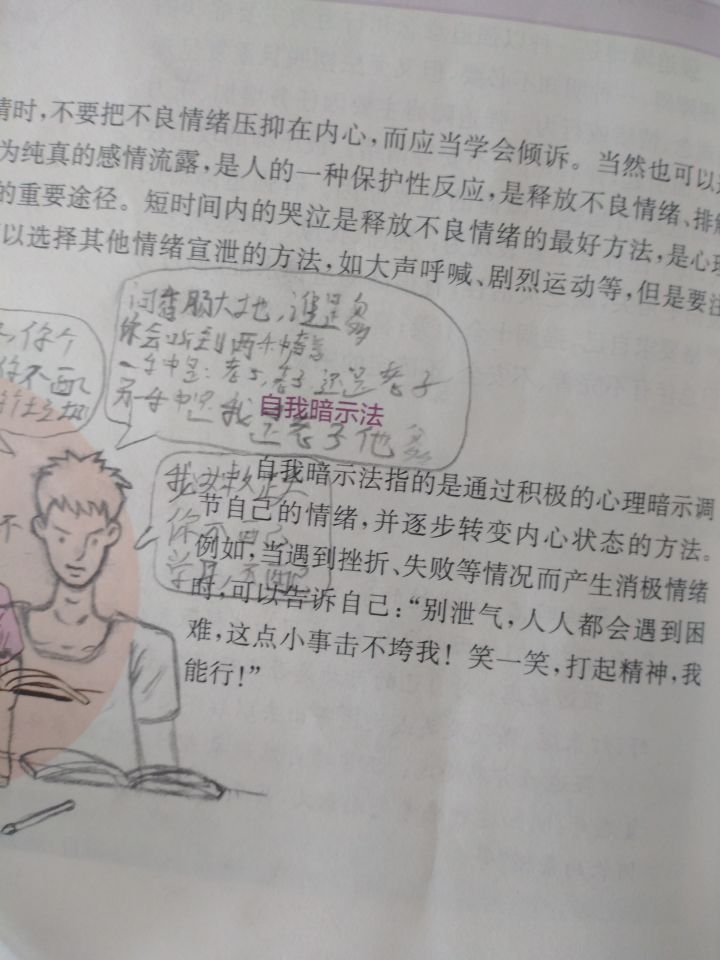 情时,不要把不良情绪压抑在内心,而应当学会倾诉。当然也可以
为纯真的感情流露,是人的一种保护性反应,是释放不良情绪、排解
的重要途径。短时间内的哭泣是释放不良情绪的最好方法,是心理
以选择其他情绪宣泄的方法,如大声呼喊、剧烈运动等,但是要注
大地,谁是
你会听到两种
一种是:老子,老子还是老子
另一种是我
还老子他
你个
你不配
自我暗示法
我
你不
不
自我暗示法指的是通过积极的心理暗示调
节自己的情绪,并逐步转变内心状态的方法。
例如,当遇到挫折、失败等情况而产生消极情绪
时,可以告诉自己:“别泄气,人人都会遇到困
难,这点小事击不垮我!笑一笑,打起精神,我
能行!”